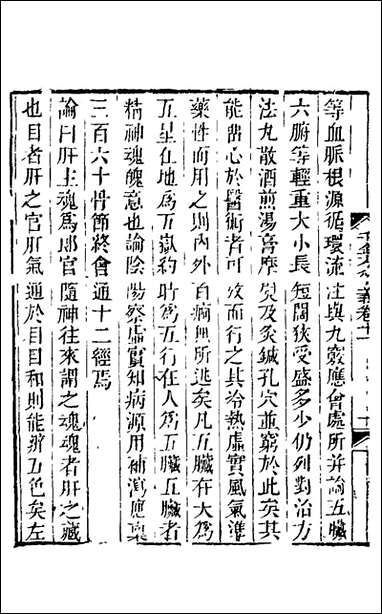 千金方衍義卷十一
等血脈根源循環流注與九竅應會處所并論五臟
六腑等輕重大小長短闊狹受盛多少仍列對治方
法丸散酒煎湯膏摩熨及灸鍼孔穴並窮於此矣其
能留心於醫術者可攷而行之其冷熱虛實風氣準
藥性而用之則內外百痾無所逃矣凡五臟在天為
五星在地為五嶽約時為五行在人為五臟五臟者
精神魂魄意也論陰陽察虛實知病源用補瀉應稟
三百六十骨節終會通十二經焉
論曰肝主魂為郎官隨神往來謂之魂魂者肝之藏
也目者肝之官肝氣通於目目和則能辨五色矣左